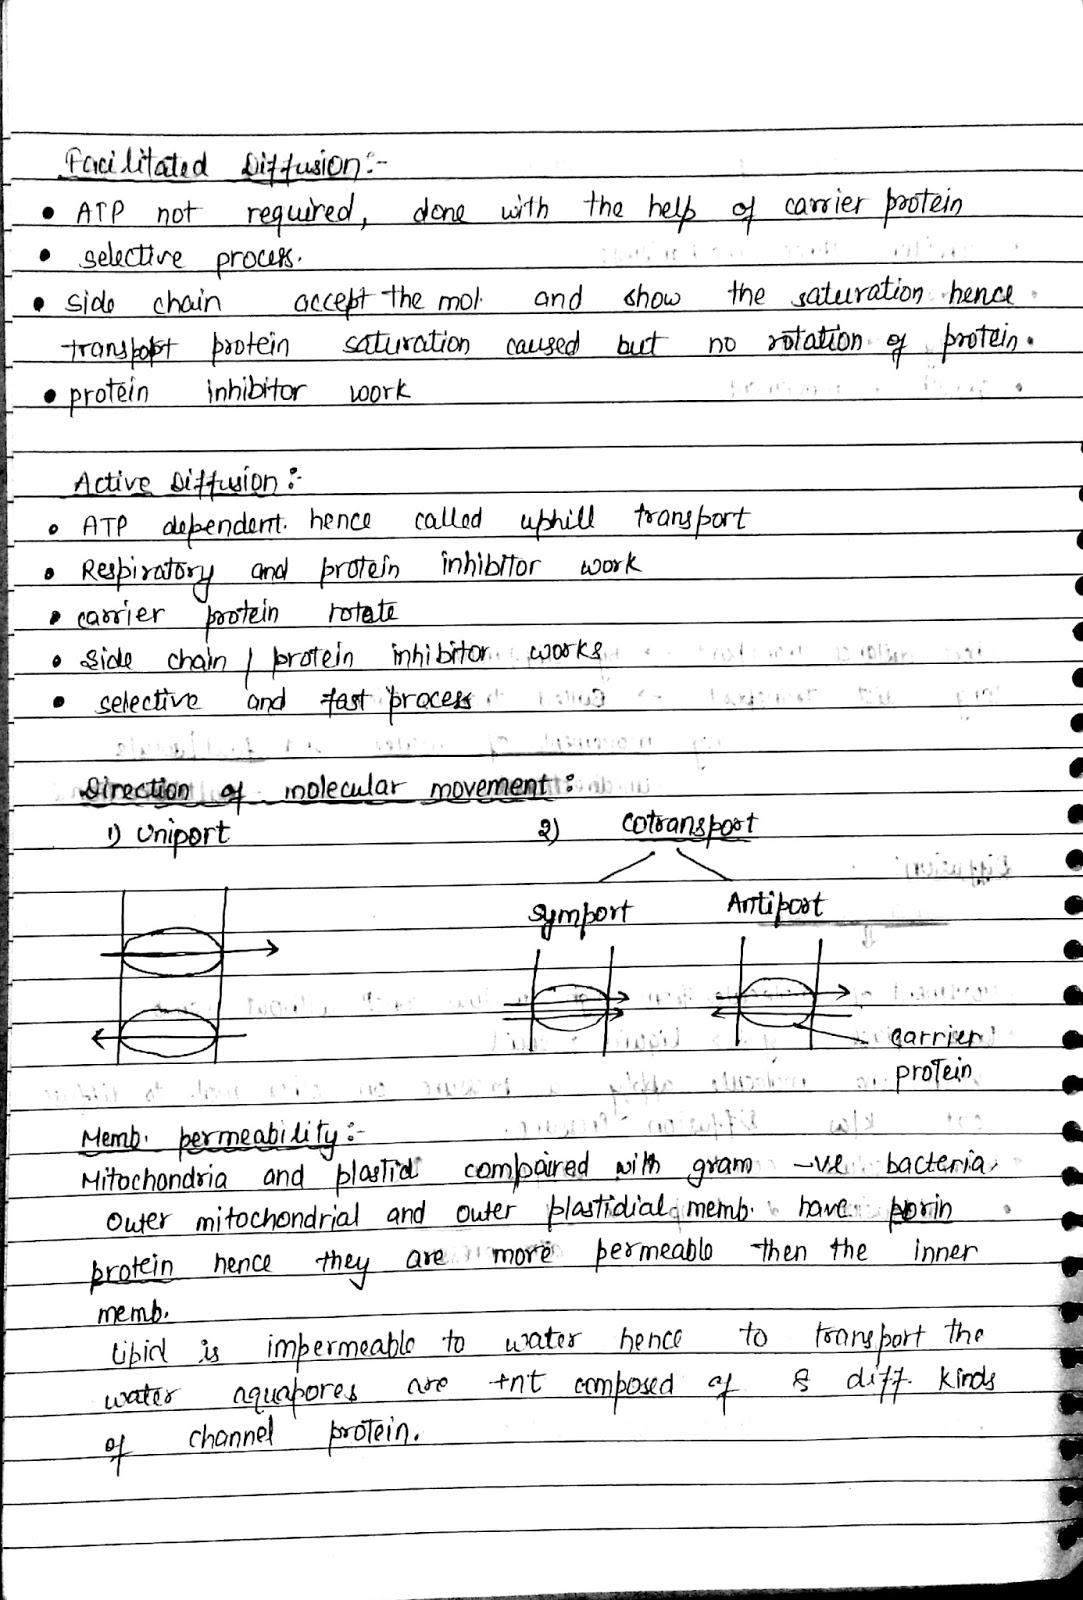 Facilitated Diffusion:-
• ATP not required, done with the help of carrier protein
• selective process.
• side chain accept the mol. and show the saturation hence
transport protein saturation caused but no rotation of protein.
• protein inhibitor work
Active Diffusion:-
• ATP dependent. hence called uphill transport
• Respiratory and protein inhibitor work
• carrier protein rotate
• side chain / protein inhibitor works
• selective and fast process
Direction of molecular movement:
1) Uniport 2) cotransport
symport Antiport
carrier
protein
Memb. permeability:-
Mitochondria and plastid compaired with gram -ve bacteria.
outer mitochondrial and outer plastidial memb. have porin
protein hence they are more permeable then the inner
memb.
Lipid is impermeable to water hence to transport the
water aquapores are +nt composed of 8 diff. kinds
of channel protein.